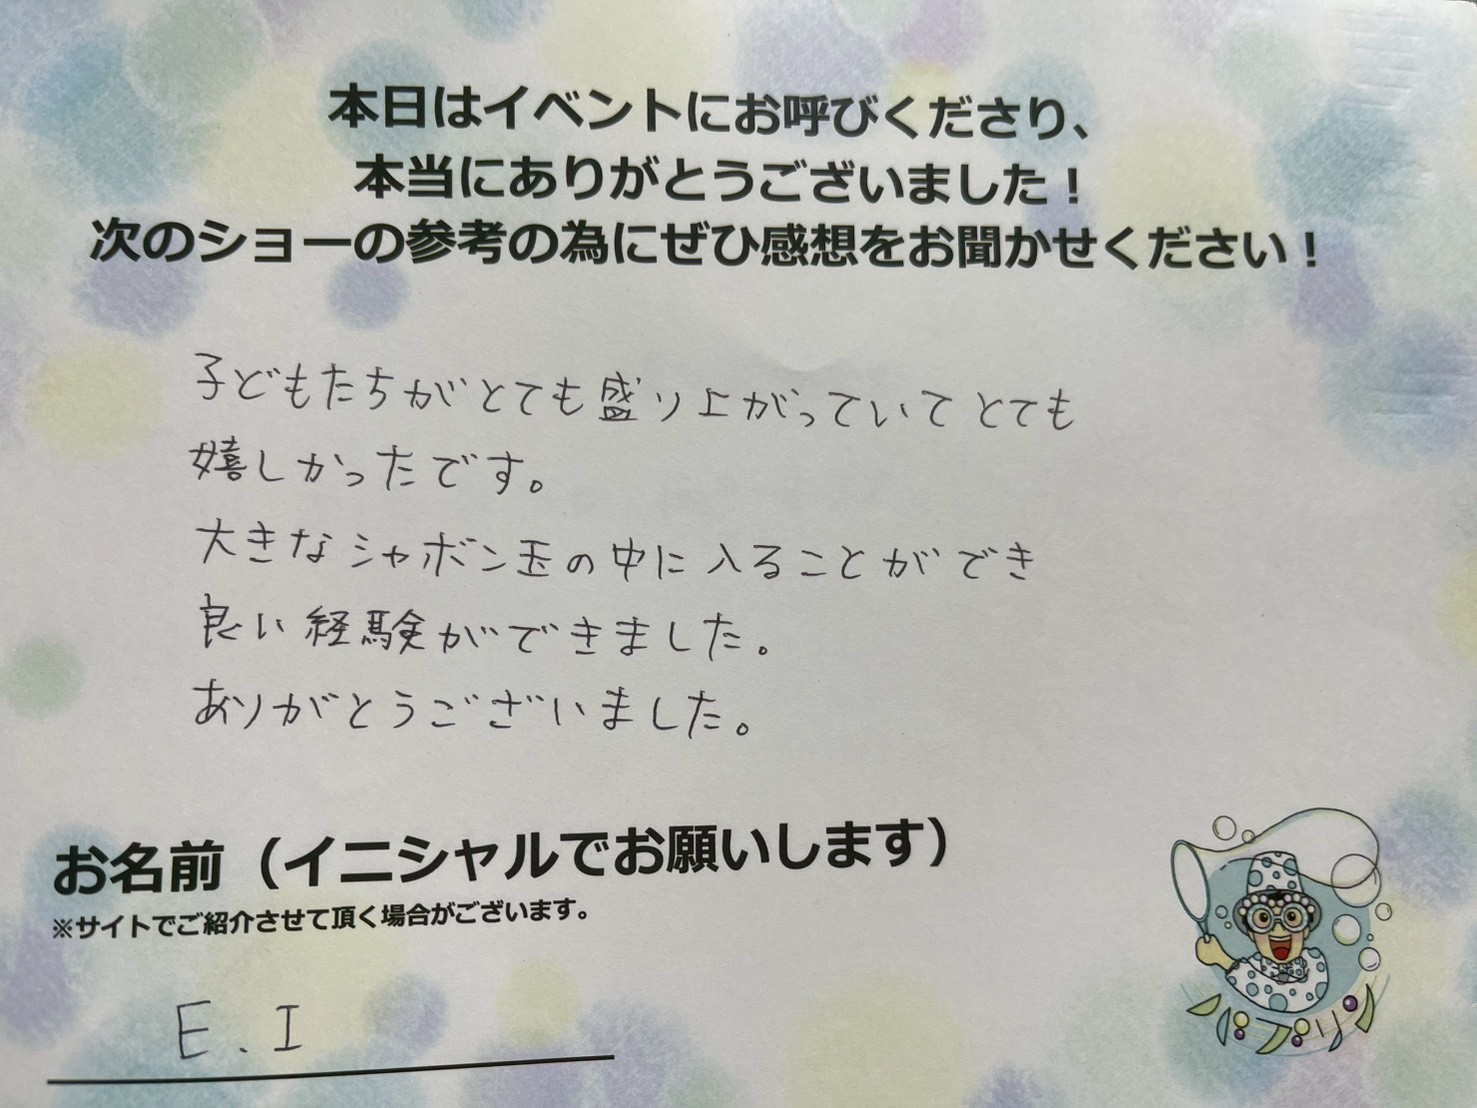 本日はイベントにお呼びくださり、
本当にありがとうございました！
次のショーの参考の為にぜひ感想をお聞かせください！
子どもたちがとても盛り上がっていてとても
嬉しかったです。
大きなシャボン玉の中に入ることができ
良い経験ができました。
ありがとうございました。
お名前（イニシャルでお願いします）
※サイトでご紹介させて頂く場合がございます。
E.I
バブリン